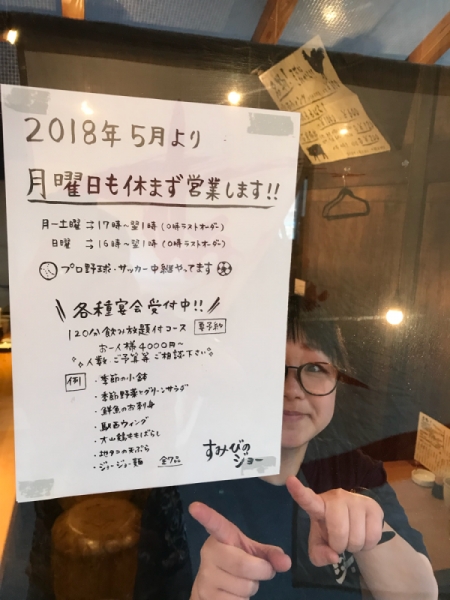 2018年5月より
月曜日も休まず営業します!!
月〜土曜 → 17時〜翌1時 (0時ラストオーダー)
日曜 → 16時〜翌1時 (0時ラストオーダー)
プロ野球・サッカー中継やってます
各種宴会受付中!!
120分飲み放題付コース 要予約
お一人様4000円〜
人数、ご予算等ご相談下さい
例
・季節の小鉢
・季節野菜とグリーンサラダ
・鮮魚のお刺身
・ウィング
・大山鶏ももばらし
・地タコの天ぷら
・ジョージョー麺 全7品
すみびのジョー